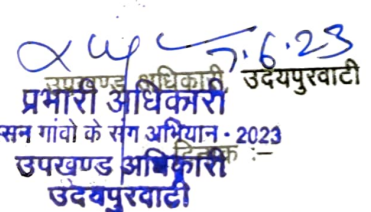 7.6.23
उपखण्ड अधिकारी, उदयपुरवाटी
प्रभारी अधिकारी
सन गांवो के संग अभियान - 2023
दिनांक :–
उपखण्ड अधिकारी
उदयपुरवाटी